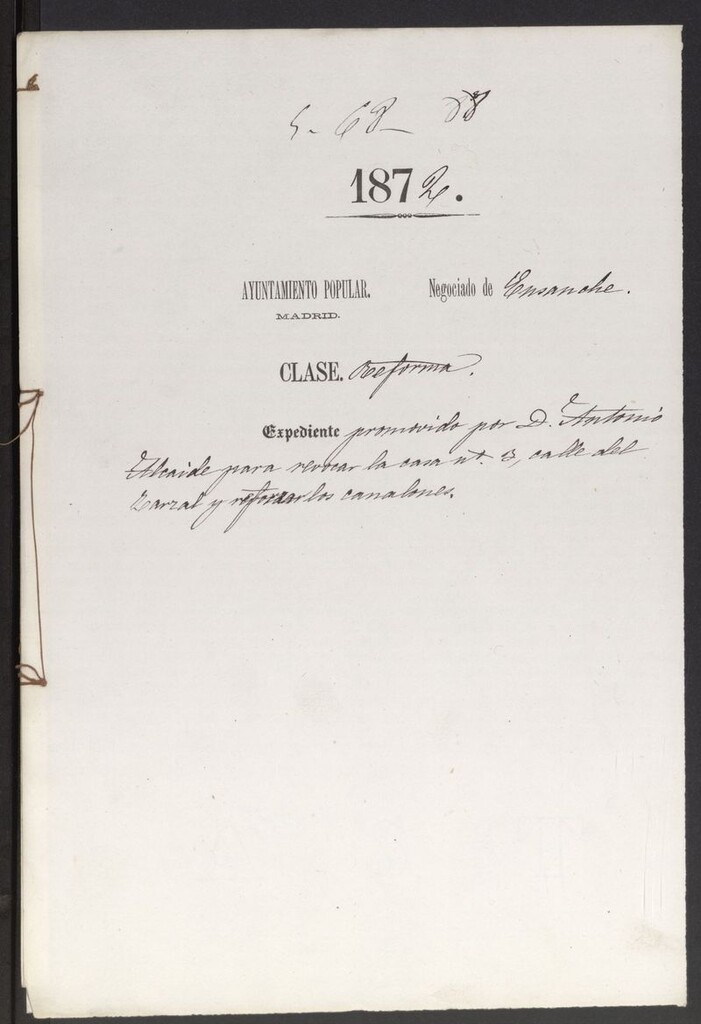 5-68-88
1872.
AYUNTAMIENTO POPULAR. Negociado de Ensanche.
MADRID.
CLASE. Reforma.
Expediente promovido por D. Antonio
Alcaide para revocar la casa nº. 3, calle del
Zarzal y reformar los canalones.